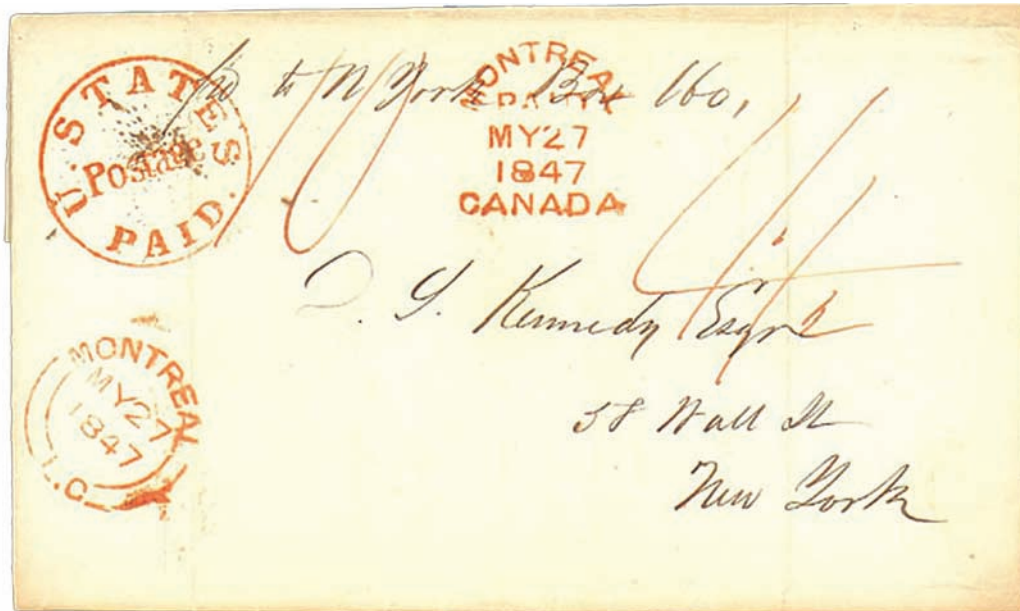 U. STATES
Postage
PAID.
to N York Box 160,
MONTREAL
PAID
MY27
1847
CANADA
10
J. Kennedy Esqre
58 Wall St
New York
MONTREAL
MY27
1847
L.C.